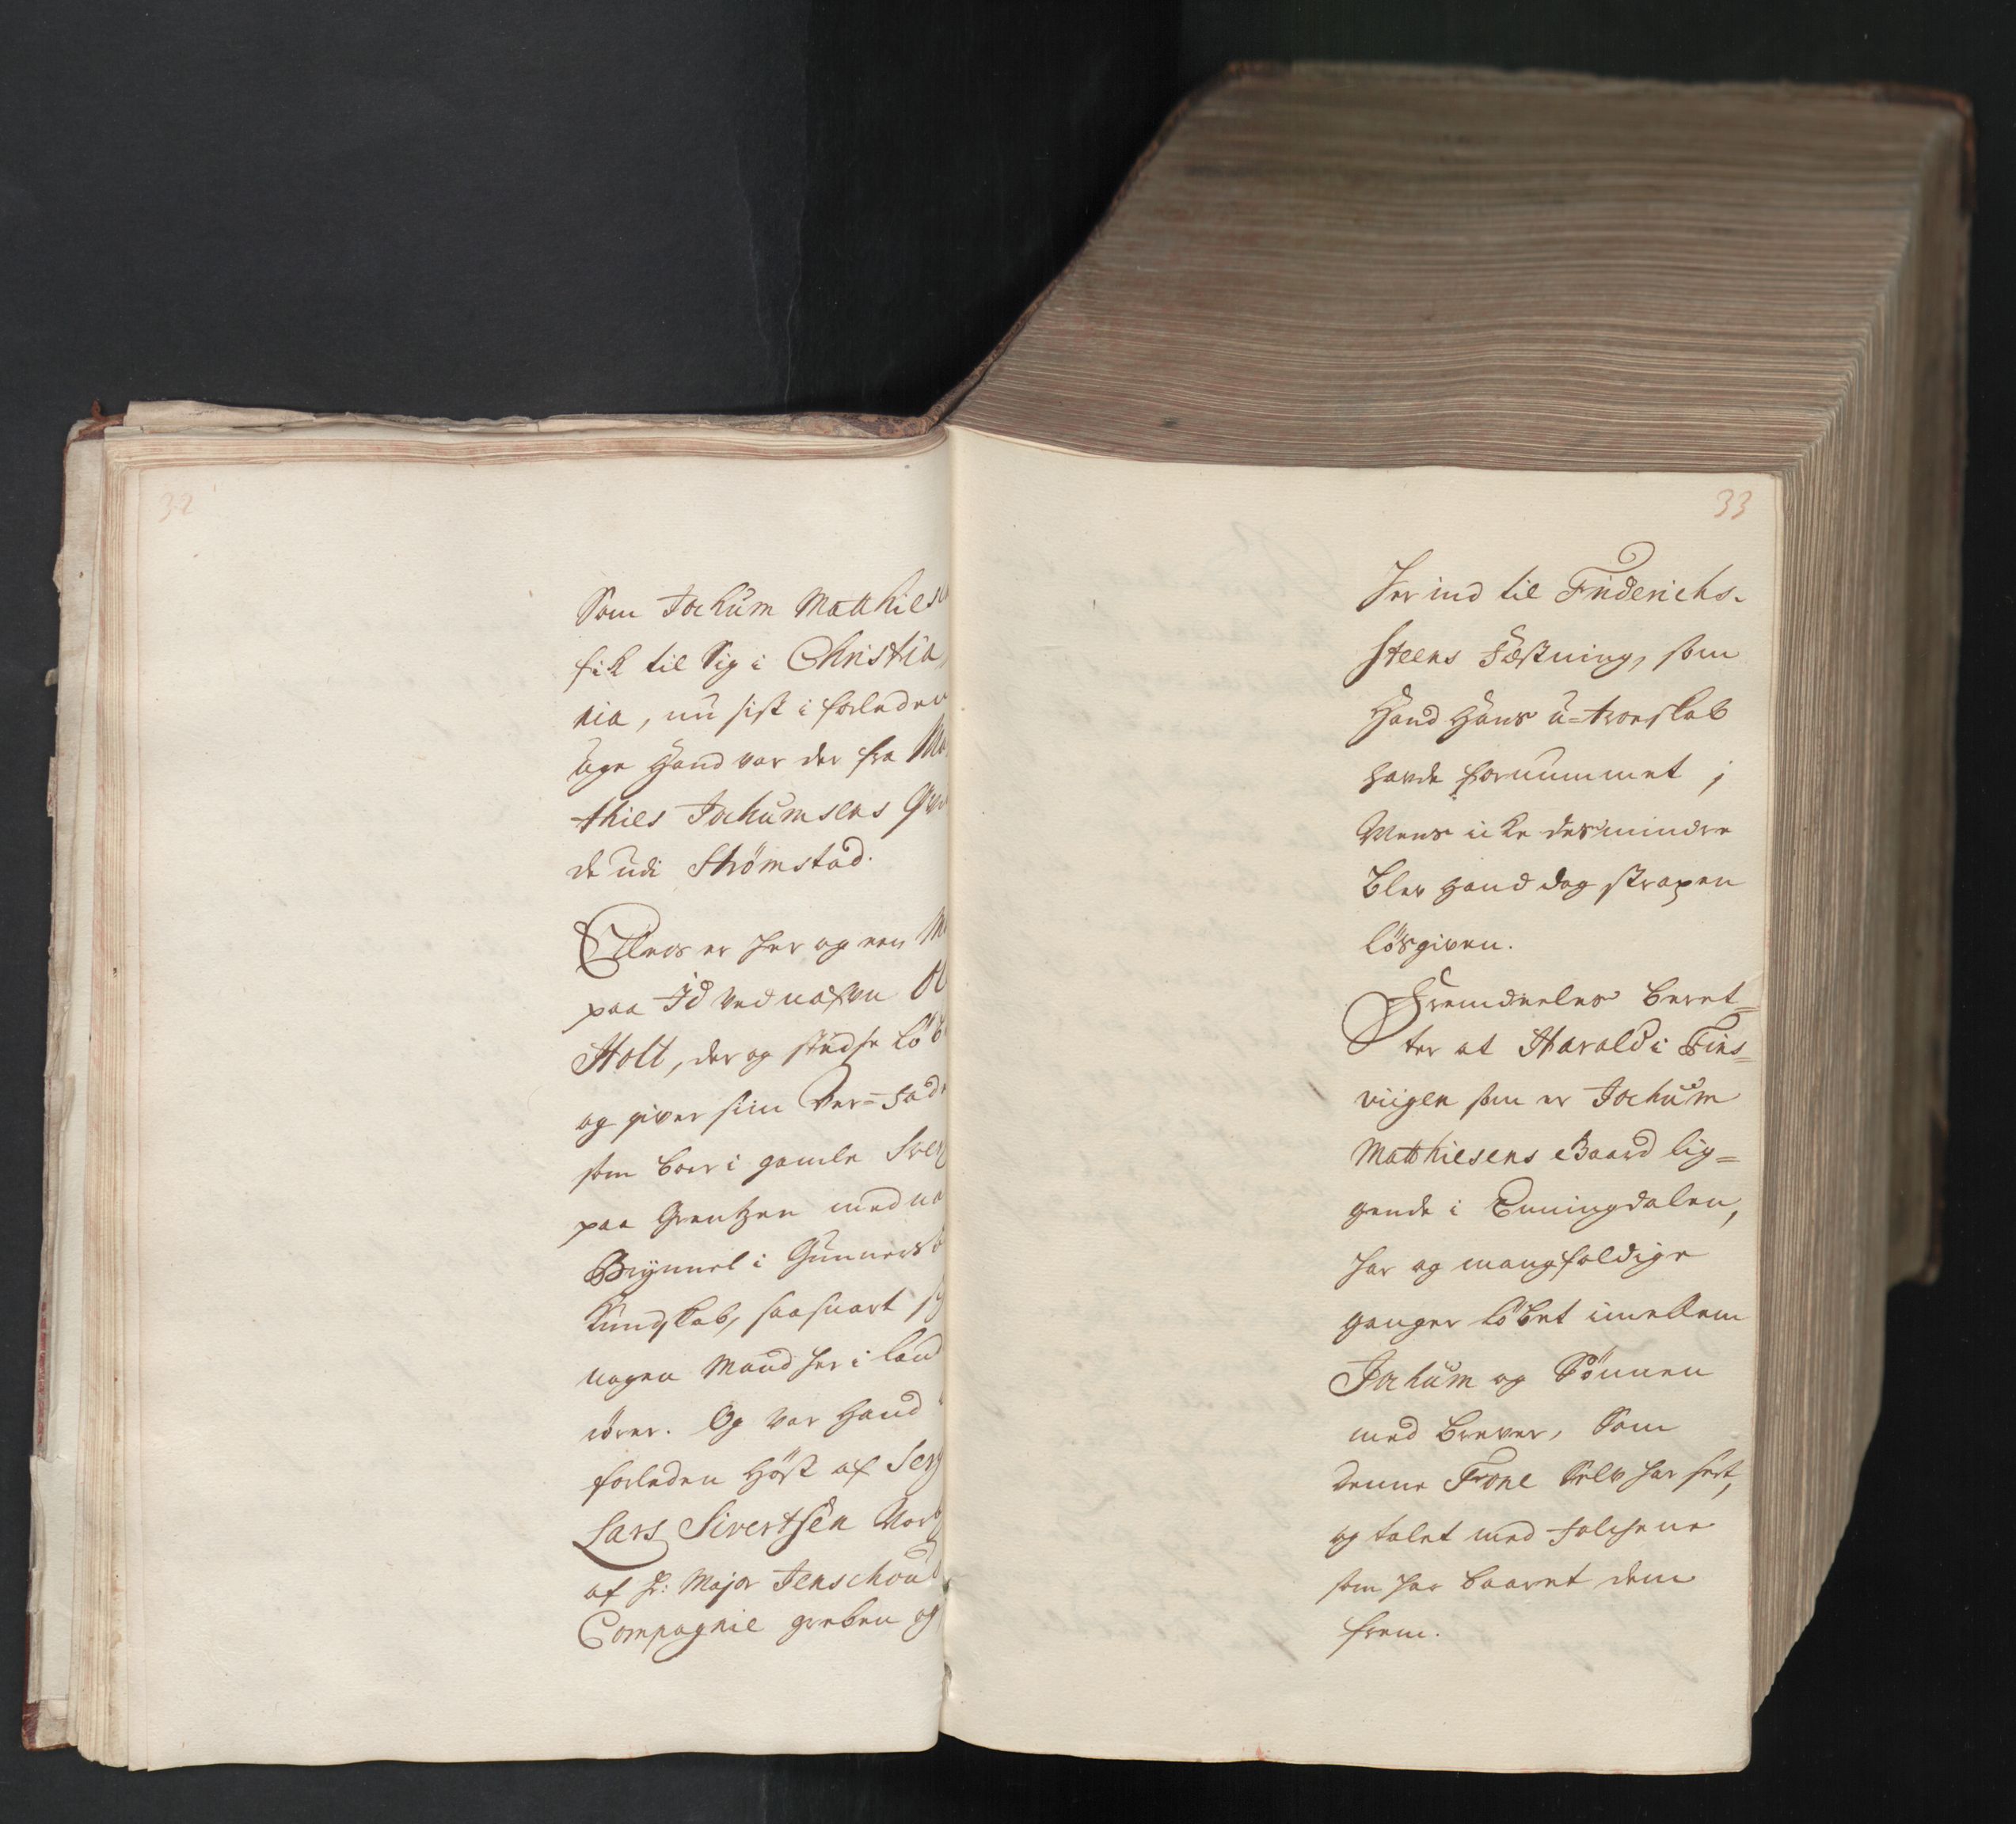 32
Som Jochum Matthiese
fik til Sig i Christia
nia, nu sist i forleden
uge Hand var der fra Ma
thies Jochumsens
de udi Strømstad.
Ellers er her og een M
paa Id ved nafvn Ol
Holt, der og stedse løb
og giver sin Ver-Fade
som boer i gamle Sver
paa Grentzen med na
Brynnel i Gunners
Kundskab, saasnart
nogen Mand her i land
rører. Og var Hand
forleden Høst af Serg
Lars Sivertsen
af Hr: Major Jenschou
Compagnie greben og
33
her ind til Friderichs-
steens Fæstning, som
Hand Hans u-troeskab
havde fornummet;
Mens icke desmindre
blev Hand dog straxen
løsgiven.
Fremdeeles beret-
ter at Harald i Fins-
viigen som er Jochum
Matthiesens Gaard lig-
gende i Enningdalen,
har og mangfoldige
ganger løbet imellem
Jochum og Sönnen
med brever, Som
denne Trone Selv har seet,
og talet med Folchene
som har baaret dem
frem.